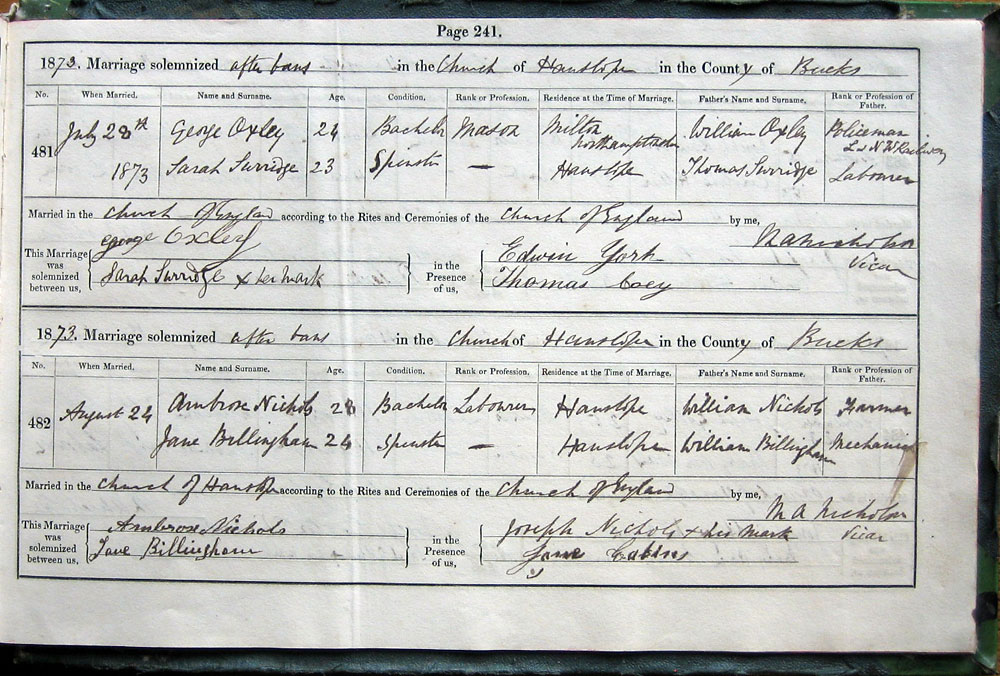 Page 241.
1873. Marriage solemnized after bans in the Church of Hanslope in the County of Bucks
No. When Married. Name and Surname. Age. Condition. Rank or Profession. Residence at the Time of Marriage. Father's Name and Surname. Rank or Profession of Father.
481 July 28th George Oxley 24 Bachelor Mason Milton Northamptonshire William Oxley Policeman L & N W Railway
1873 Sarah Surridge 23 Spinster — Hanslope Thomas Surridge Labourer
Married in the Church of England according to the Rites and Ceremonies of the Church of England by me,
George Oxley Edwin York M A Nicholson
This Marriage was solemnized between us, Sarah Surridge x her mark in the Presence of us, Thomas Coey Vicar
1873. Marriage solemnized after bans in the Church of Hanslope in the County of Bucks
No. When Married. Name and Surname. Age. Condition. Rank or Profession. Residence at the Time of Marriage. Father's Name and Surname. Rank or Profession of Father.
482 August 24 Ambrose Nichols 28 Bachelor Labourer Hanslope William Nichols Farmer
Jane Billingham 24 Spinster — Hanslope William Billingham Mechanic
Married in the Church of Hanslope according to the Rites and Ceremonies of the Church of England by me,
This Marriage was solemnized between us, Ambrose Nichols in the Presence of us, Joseph Nichols x his mark M A Nicholson
Jane Billingham Jane Vicar